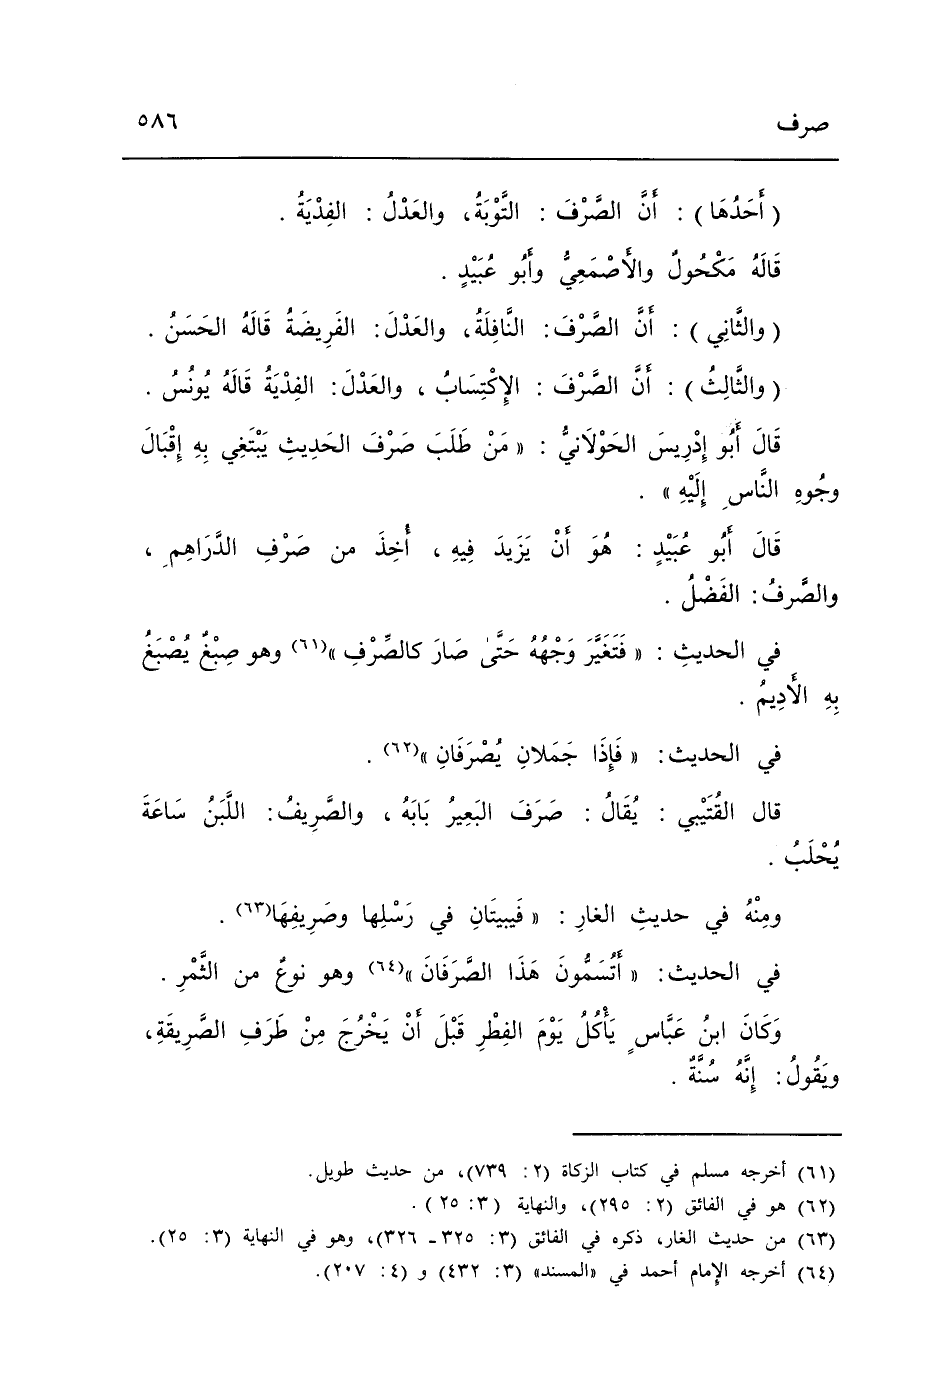 صرف ٥٨٦
( أَحَدُهَا ) : أَنَّ الصَّرْفَ : التَّوْبَةُ، والعَدْلُ : الفِدْيَةُ .
قَالَهُ مَكْحُولٌ والأَصْمَعِيُّ وأَبُو عُبَيْدٍ .
( والثَّانِي ) : أَنَّ الصَّرْفَ: النَّافِلَةُ، والعَدْلَ: الفَرِيضَةُ قَالَهُ الحَسَنُ .
( والثَّالِثُ ) : أَنَّ الصَّرْفَ : الإِكْتِسَابُ ، والعَدْلَ: الفِدْيَةُ قَالَهُ يُونُسُ .
قَالَ أَبُو إِدْرِيسَ الحَوْلَانيُّ : « مَنْ طَلَبَ صَرْفَ الحَدِيثِ يَبْتَغِي بِهِ إِقْبَالَ
وجُوهِ النَّاسِ إِلَيْهِ » .
قَالَ أَبُو عُبَيْدٍ : هُوَ أَنْ يَزِيدَ فِيهِ ، أُخِذَ من صَرْفِ الدَّرَاهِمِ ،
والصَّرفُ: الفَضْلُ .
في الحديثِ : « فَتَغَيَّرَ وَجْهُهُ حَتَّىٰ صَارَ كالصِّرْفِ »(٦١) وهو صِبْغٌ يُصْبَغُ
بِهِ الأَدِيمُ .
في الحديث: « فَإِذَا جَمَلانِ يُصْرَفَانِ »(٦٢) .
قال القُتَيْبي : يُقَالُ : صَرَفَ البَعِيرُ بَابَهُ ، والصَّرِيفُ: اللَّبَنُ سَاعَةَ
يُحْلَبُ .
ومِنْهُ في حديثِ الغارِ : « فَيبيتَانِ في رَسْلِها وصَرِيفِهَا(٦٣) .
في الحديث: « أَتُسَمُّونَ هَذَا الصَّرَفَانَ »(٦٤) وهو نوعٌ من الثَّمْرِ .
وَكَانَ ابنُ عَبَّاسٍ يَأْكُلُ يَوْمَ الفِطْرِ قَبْلَ أَنْ يَخْرُجَ مِنْ طَرَفِ الصَّرِيقَةِ،
ويَقُولُ: إِنَّهُ سُنَّةٌ .
(٦١) أخرجه مسلم في كتاب الزكاة (٢ : ٧٣٩)، من حديث طويل.
(٦٢) هو في الفائق (٢ : ٢٩٥)، والنهاية (٣ : ٢٥ ) .
(٦٣) من حديث الغار، ذكره في الفائق (٣ : ٣٢٥ ـ ٣٢٦)، وهو في النهاية (٣ : ٢٥).
(٦٤) أخرجه الإمام أحمد في «المسند» (٣ : ٤٣٢) و (٤ : ٢٠٧).